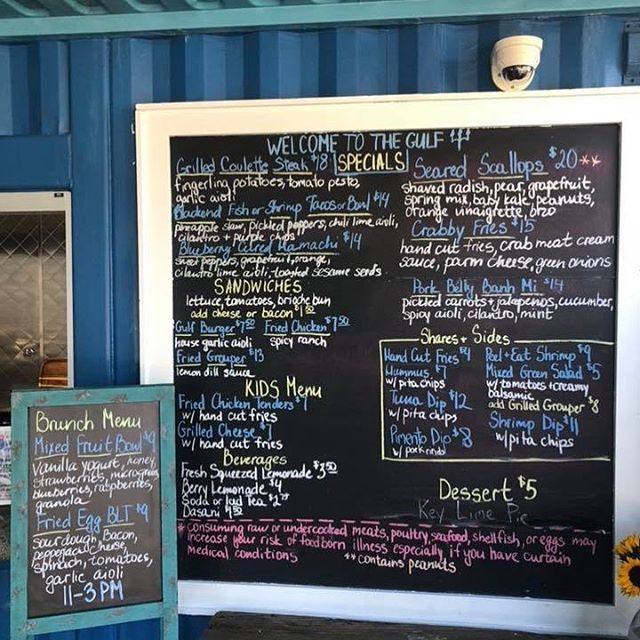 WELCOME TO THE GULF
SPECIALS
Grilled Coulette Steak $18
fingerling potatoes, tomato pesto,
garlic aioli
Blackend Fish or Shrimp Tacos or Bowl $14
pineapple slaw, pickled peppers, chili lime aioli,
cilantro + purple chips
Blueberry Cured Hamachi $14
sweet peppers, grapefruit, orange,
cilantro lime aioli, toasted sesame seeds
SANDWICHES
lettuce, tomatoes, brioche bun
add cheese or bacon $1.50
Gulf Burger $7.50 Fried Chicken $7.50
house garlic aioli spicy ranch
Fried Grouper $13
lemon dill sauce
KIDS Menu
Fried Chicken Tenders $7
w/ hand cut fries
Grilled Cheese $7
w/ hand cut fries
Beverages
Fresh Squeezed Lemonade $3.50
Berry Lemonade $4
Soda or Iced Tea $2.75
Dasani
Seared Scallops $20**
shaved radish, pear, grapefruit,
spring mix, baby kale, peanuts,
orange vinaigrette, orzo
Crabby Fries $15
hand cut fries, crab meat cream
sauce, parm cheese, green onions
Pork Belly Banh Mi $14
pickled carrots + jalapenos, cucumber,
spicy aioli, cilantro, mint
Shares + Sides
Hand Cut Fries $4
Hummus $7
w/ pita chips
Tuna Dip $12
w/ pita chips
Pimento Dip $8
w/ pork rinds
Peel + Eat Shrimp $9
Mixed Green Salad $5
w/ tomatoes + creamy
balsamic
add Grilled Grouper $8
Shrimp Dip $11
w/ pita chips
Dessert $5
Key Lime Pie
* consuming raw or undercooked meats, poultry, seafood, shellfish, or eggs may
increase your risk of food born illness especially if you have curtain
medical conditions
** contains peanuts
Brunch Menu
Mixed Fruit Bowl $9
Vanilla yogurt, honey,
strawberries, microgreens,
blueberries, raspberries,
granola
Fried Egg BLT $9
sourdough, Bacon,
pepperjack cheese,
spinach, tomatoes,
garlic aioli
11-3 PM